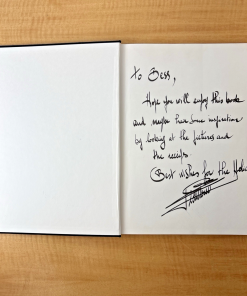 To Bess,
Hope you will enjoy this book
and maybe have some inspiration
by looking at the pictures and
the recips.
Best wishes for the